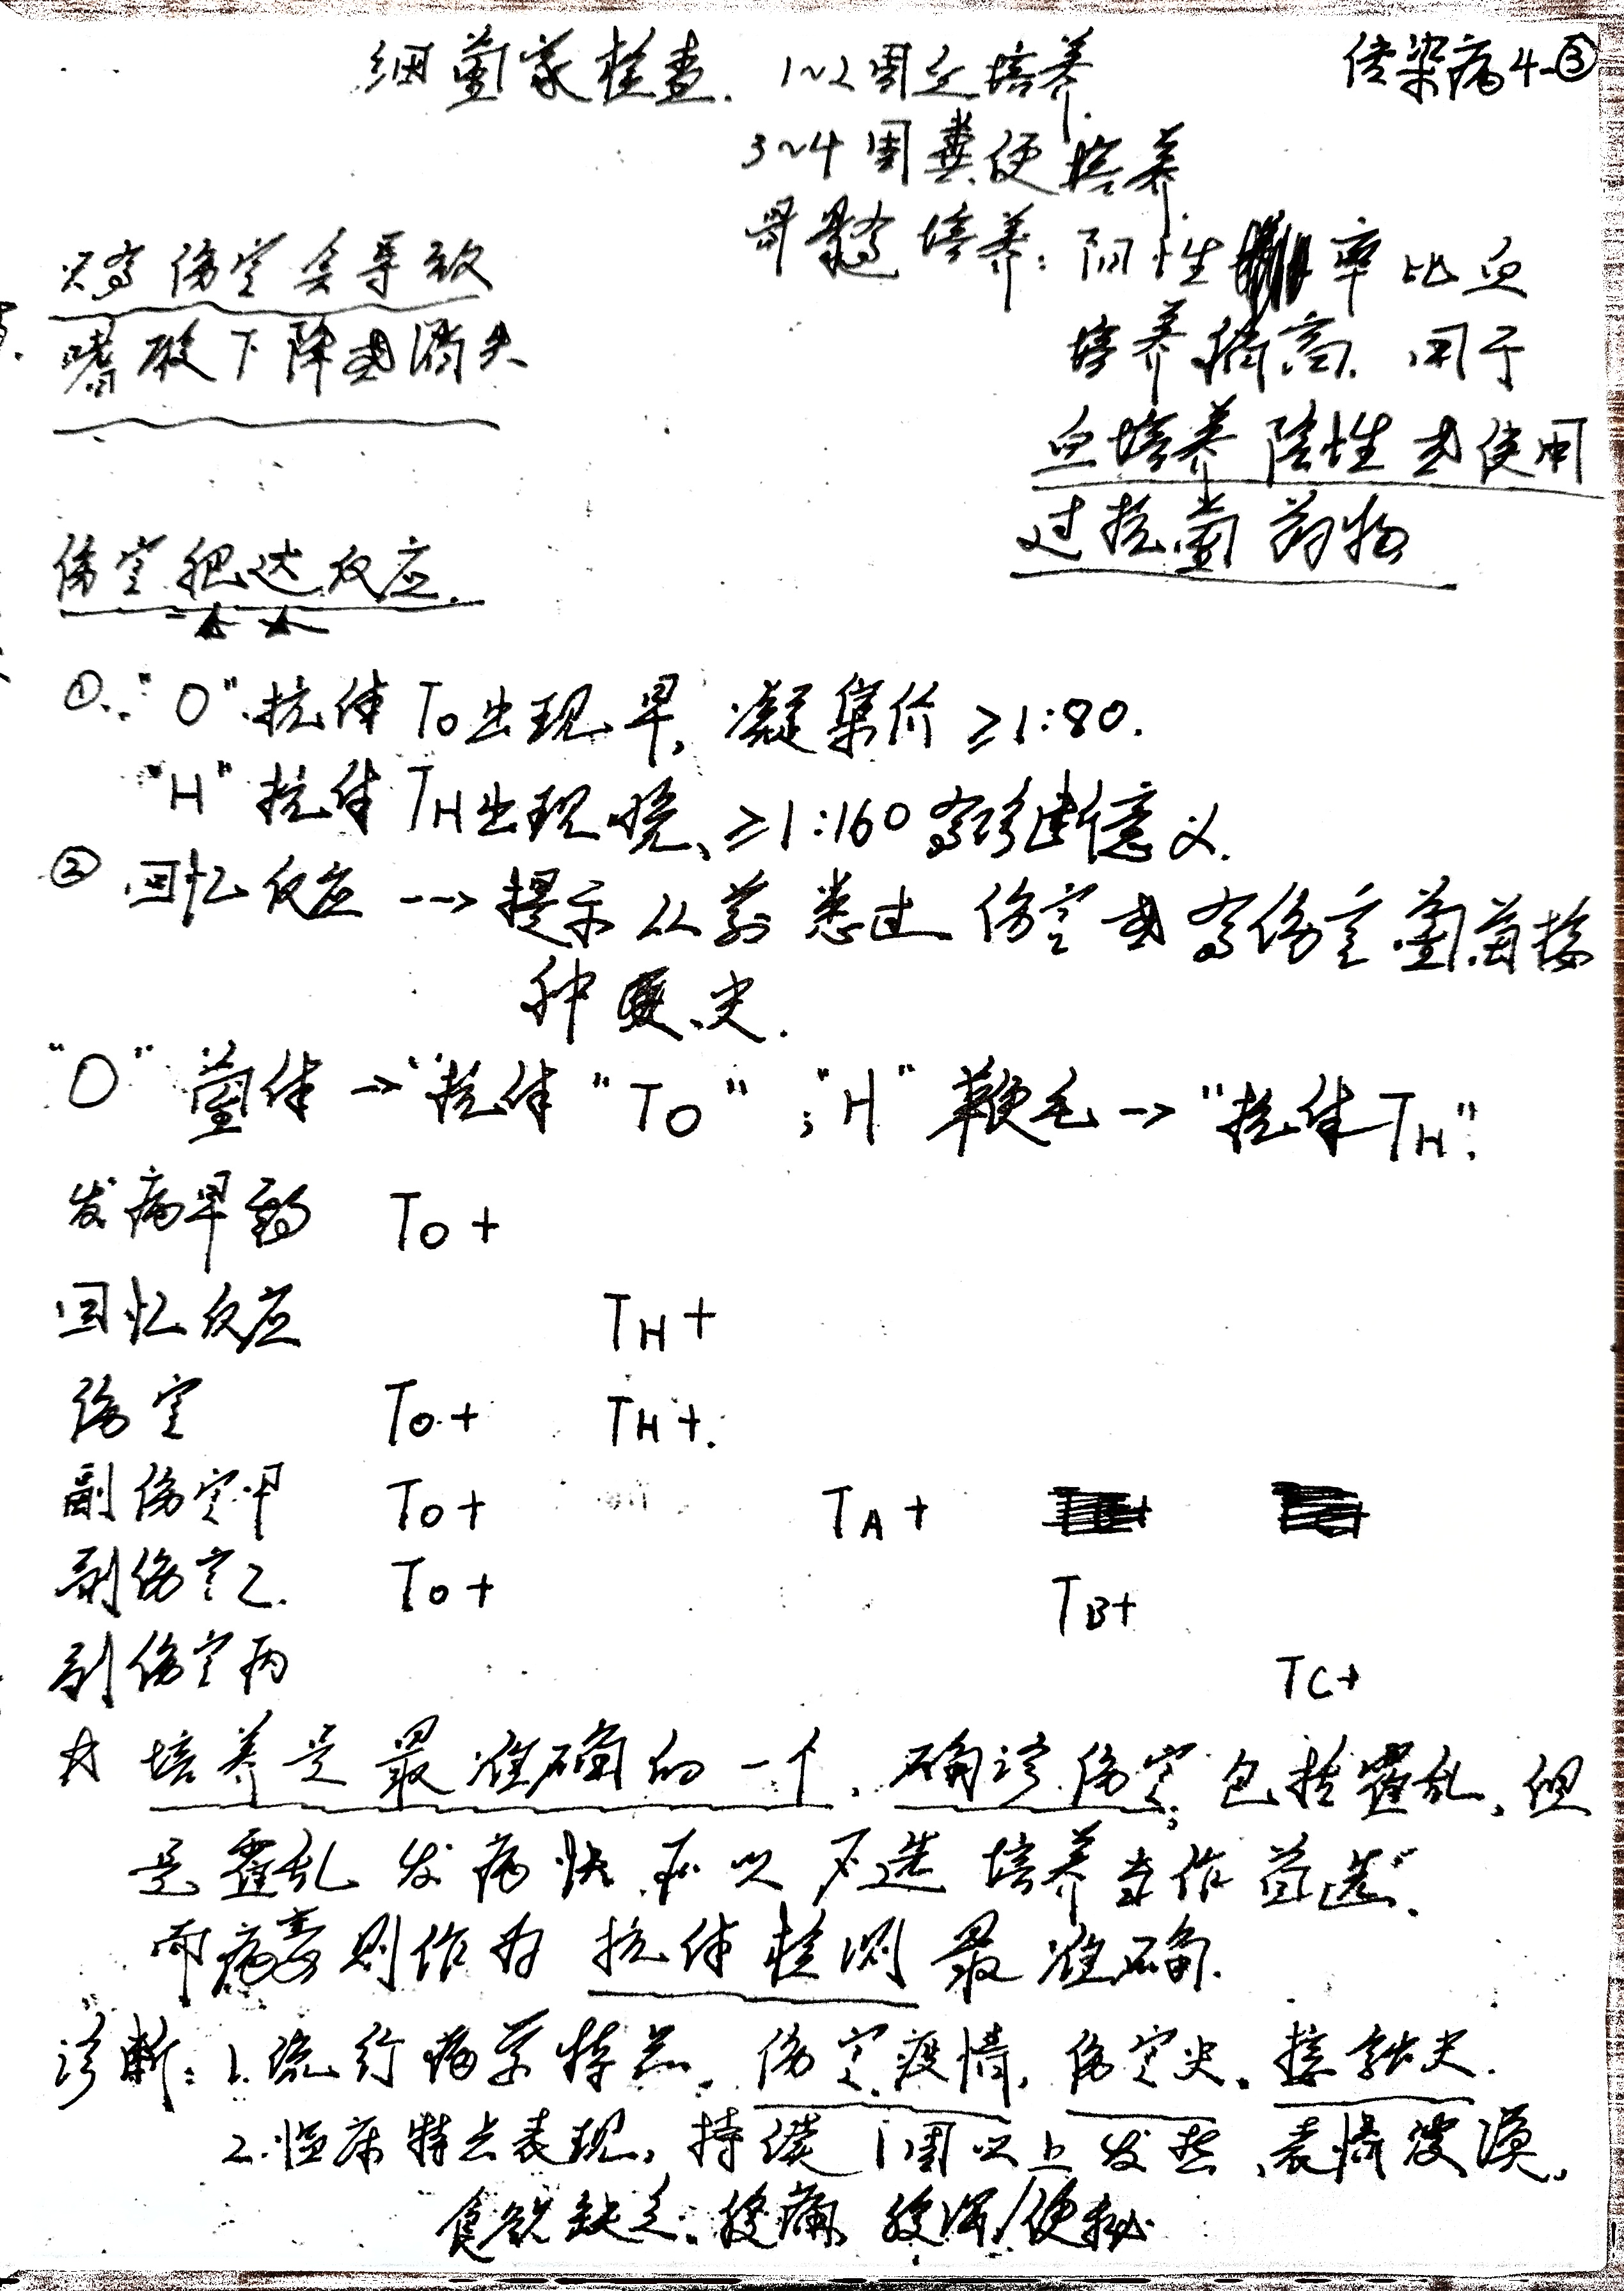 传染病4-③
细菌学检查. 1~2周血培养.
3~4周粪便培养.
骨髓培养: 阳性率比血
培养稍高. 用于
血培养阴性或使用
过抗菌药物
只有伤寒会导致
嗜酸下降或消失
伤寒肥达反应.
①."O"抗体To出现早, 凝集价≥1:80.
"H"抗体TH出现晚、≥1:160有诊断意义.
②回忆反应--→提示从前患过伤寒或有伤寒菌苗接
种史.
"O"菌体→"抗体"To";"H"鞭毛→"抗体TH".
发病早期 To+
回忆反应 TH+
伤寒 To+ TH+.
副伤寒甲 To+ TA+
副伤寒乙. To+ TB+
副伤寒丙 TC+
☆ 培养是最准确的一个, 确诊伤寒; 包括霍乱, 但
是霍乱发病快所以不选培养当作首选".
而病毒则作为抗体检测最准确.
诊断: 1.流行病学特点, 伤寒疫情, 伤寒史、接触史.
2.临床特点表现, 持续1周以上发热、表情淡漠,
食欲缺乏、腹痛, 腹泻/便秘